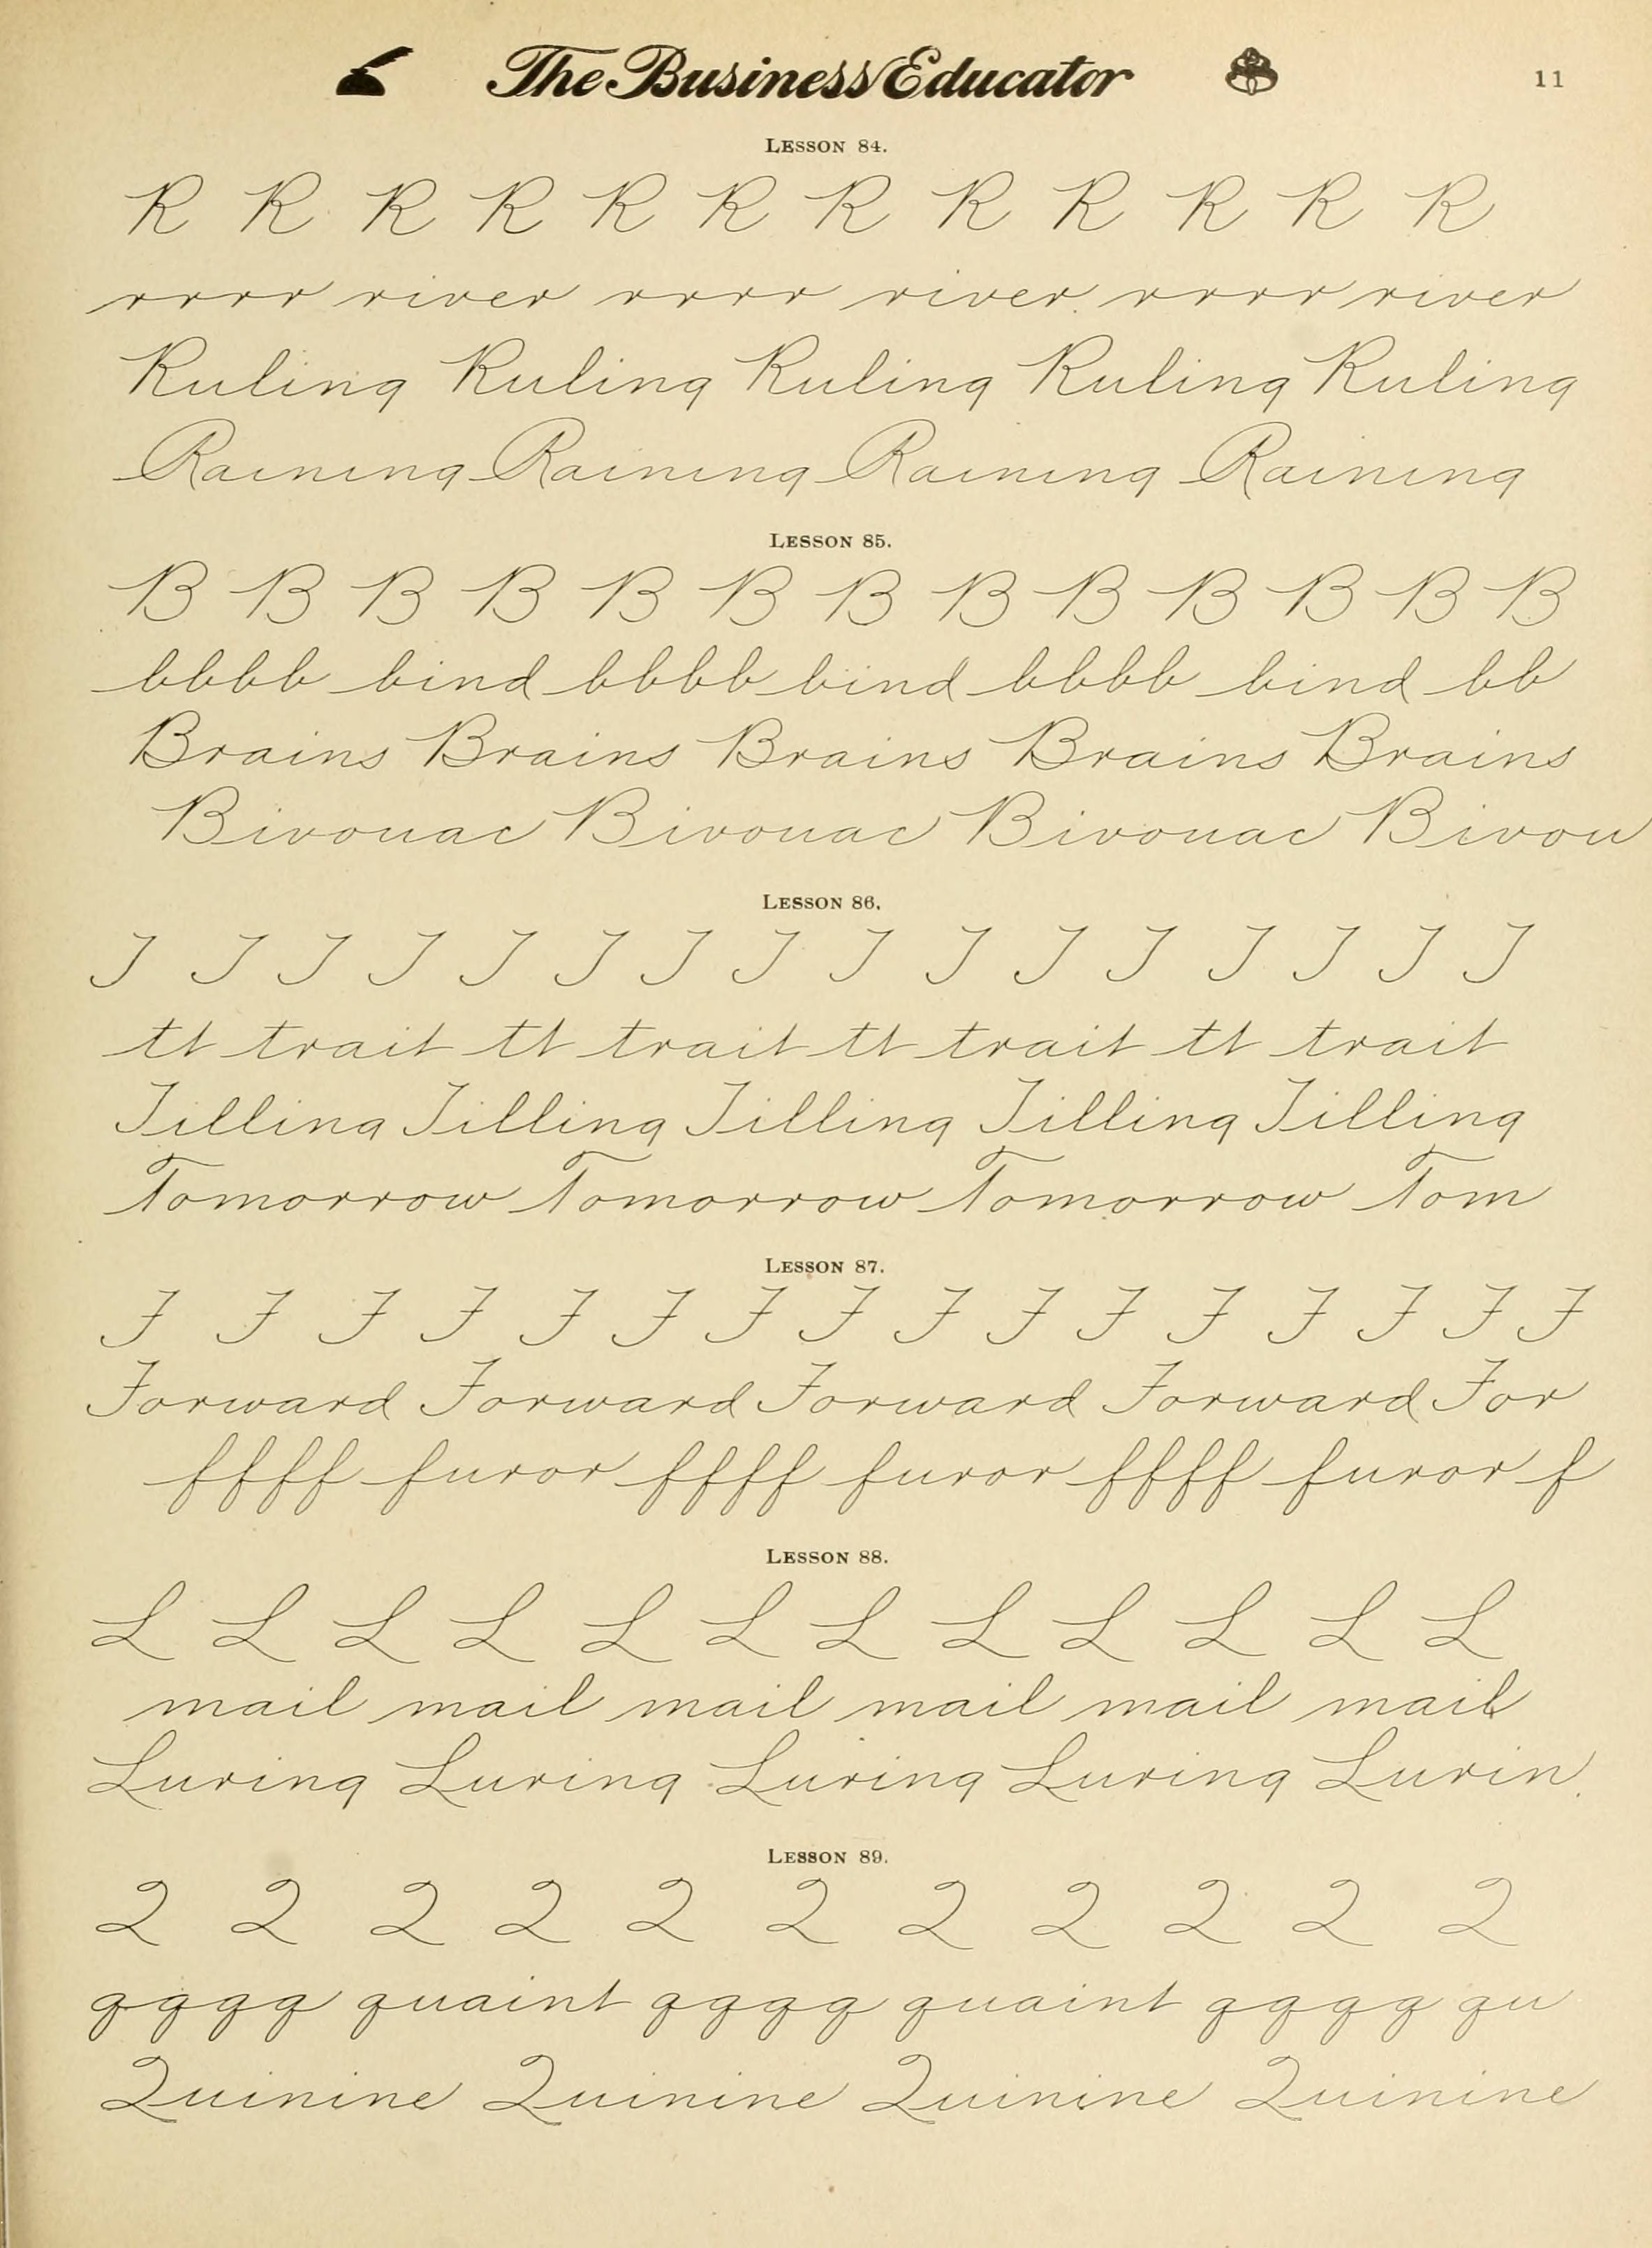 The Business Educator 11
LESSON 84.
R R R R R R R R R R R R
rrrr river rrrr river rrrr river
Ruling Ruling Ruling Ruling Ruling
Raining Raining Raining Raining
LESSON 85.
B B B B B B B B B B B B B
bbbb bind bbbb bind bbbb bind bb
Brains Brains Brains Brains Brains
Bivouac Bivouac Bivouac Bivou
LESSON 86.
T T T T T T T T T T T T T T T T
tt trait tt trait tt trait tt trait
Tilling Tilling Tilling Tilling Tilling
Tomorrow Tomorrow Tomorrow Tom
LESSON 87.
F F F F F F F F F F F F F F F F
Forward Forward Forward Forward For
ffff furor ffff furor ffff furor f
LESSON 88.
L L L L L L L L L L L L
mail mail mail mail mail mail
Luring Luring Luring Luring Lurin
LESSON 89.
Q Q Q Q Q Q Q Q Q Q Q
qqqq quaint qqqq quaint qqqq qu
Quinine Quinine Quinine Quinine